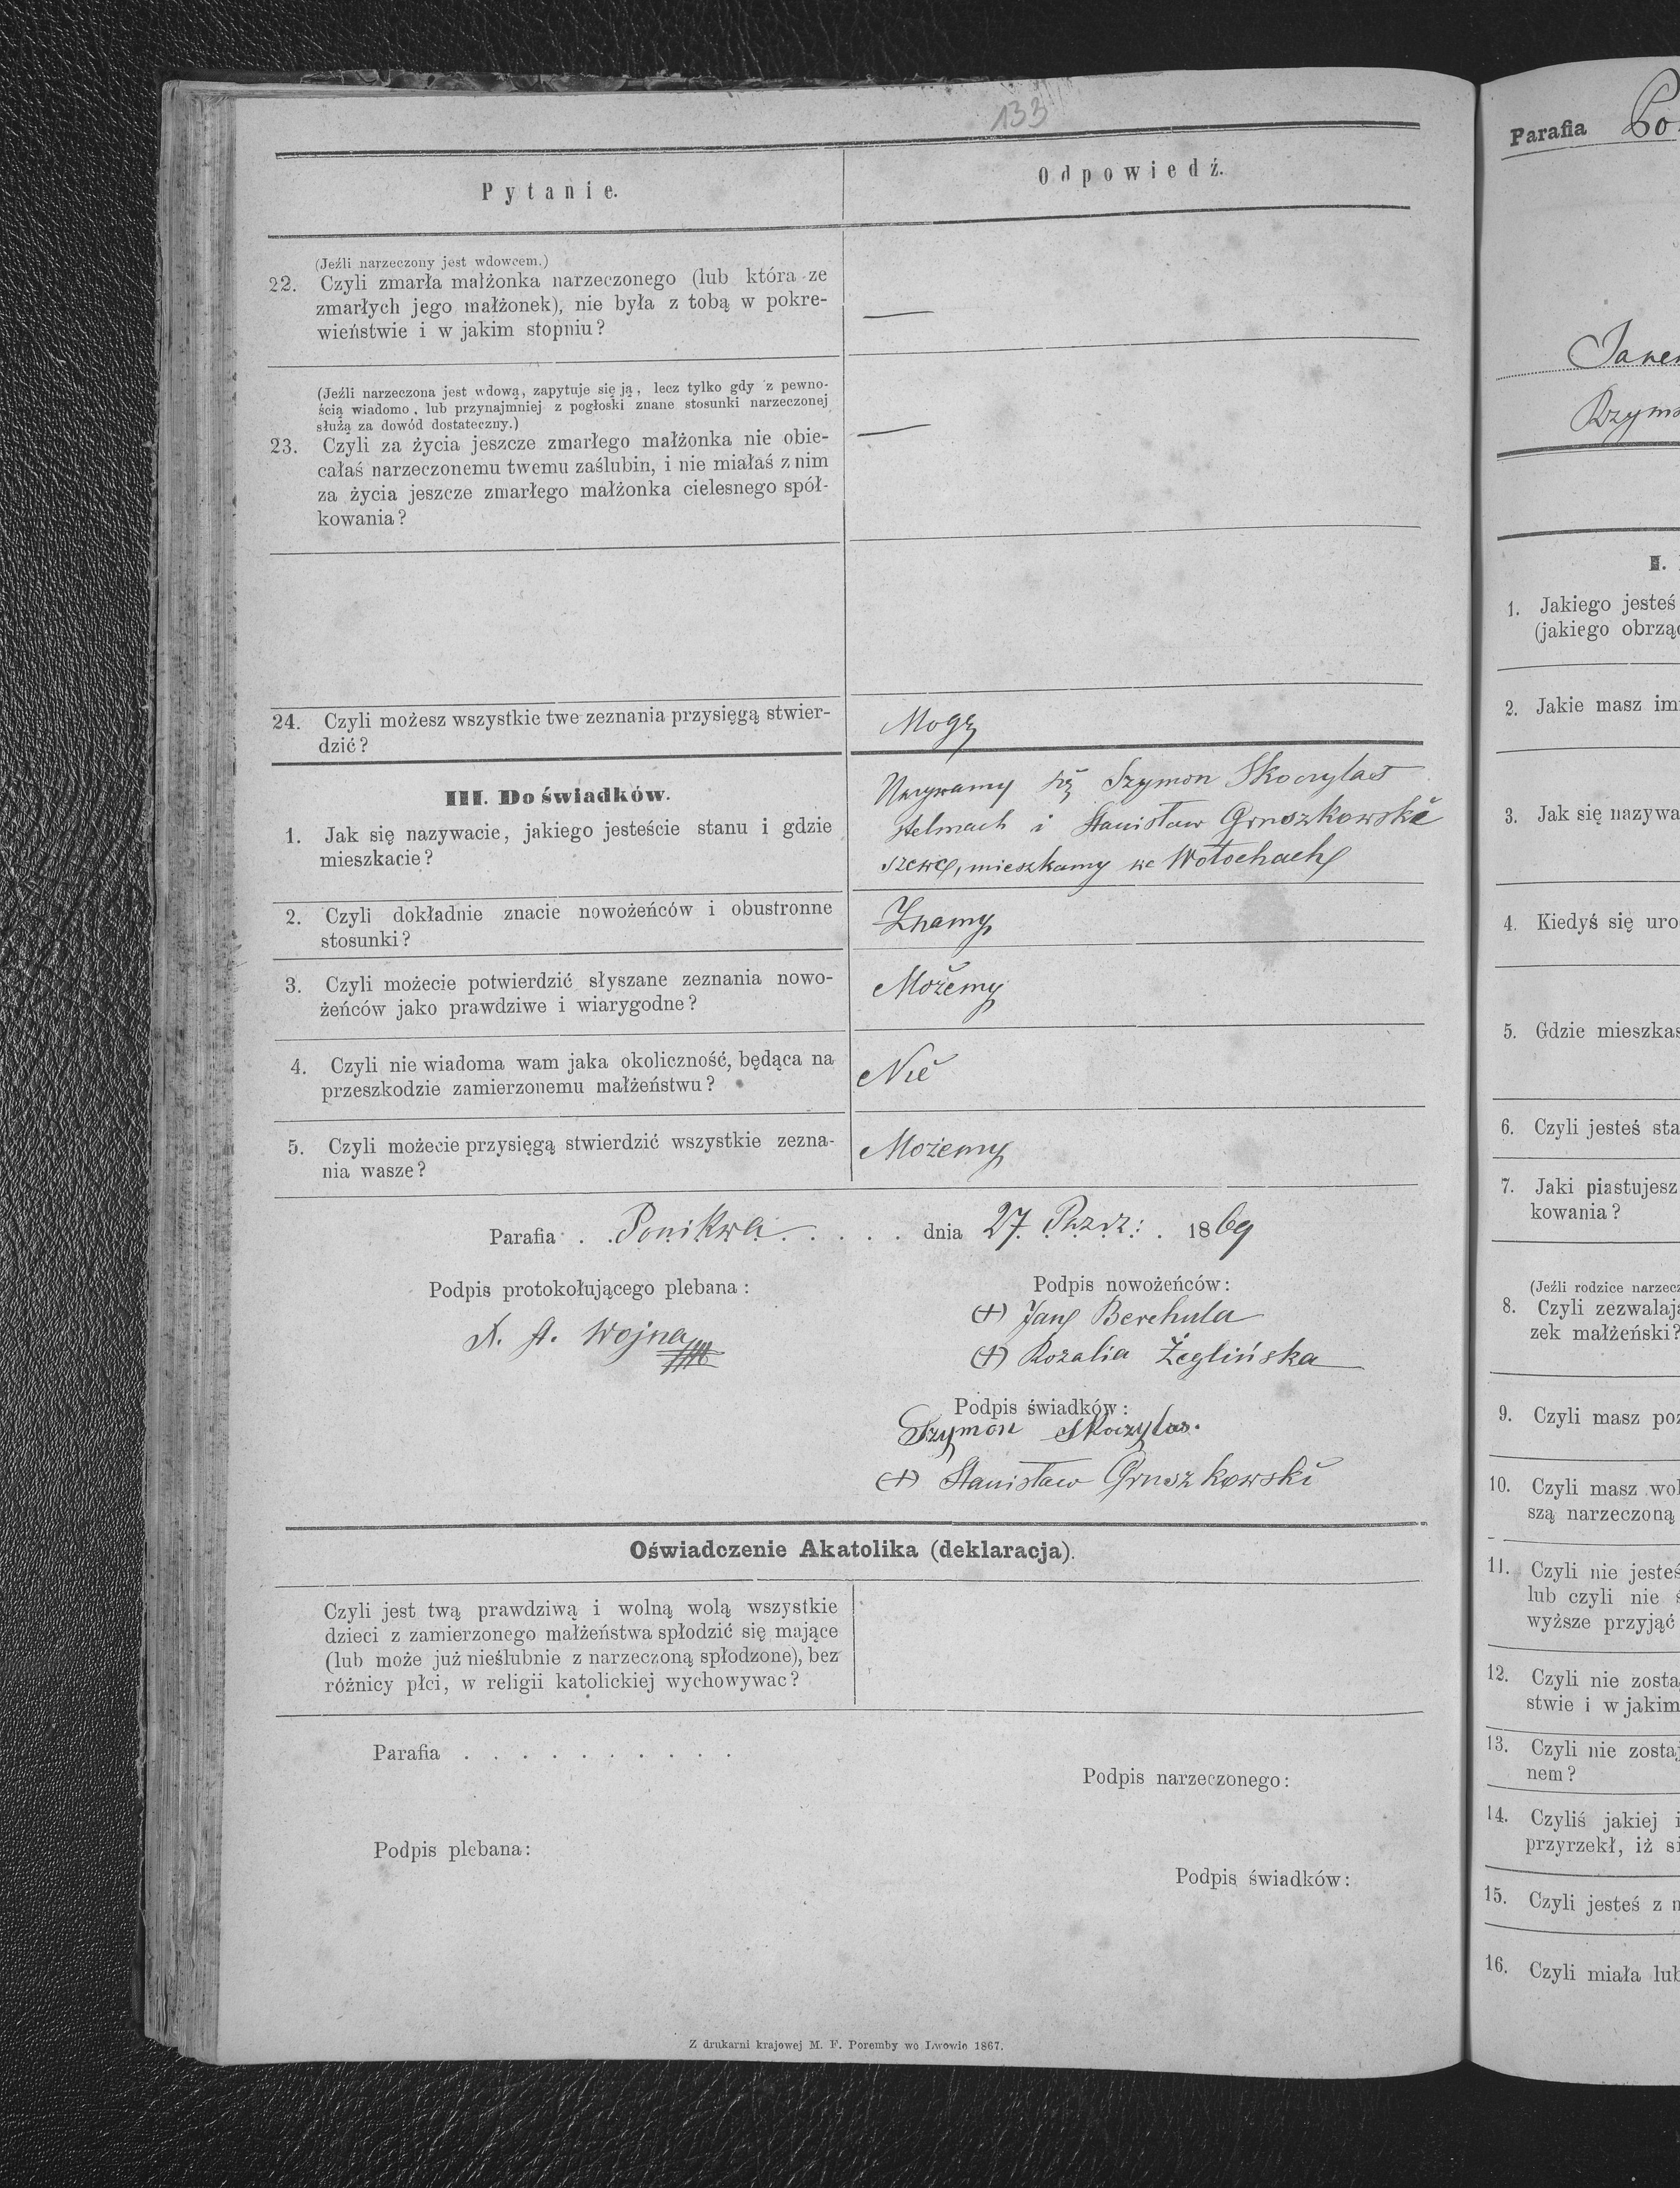 133
Pytanie.
Odpowiedź.
(Jeźli narzeczony jest wdowcem.)
22. Czyli zmarła małżonka narzeczonego (lub która ze
zmarłych jego małżonek), nie była z tobą w pokre-
wieństwie i w jakim stopniu?
—
(Jeźli narzeczona jest wdową, zapytuje się ją, lecz tylko gdy z pewno-
ścią wiadomo, lub przynajmniej z pogłoski znane stosunki narzeczonej
służą za dowód dostateczny.)
23. Czyli za życia jeszcze zmarłego małżonka nie obie-
całaś narzeczonemu twemu zaślubin, i nie miałaś z nim
za życia jeszcze zmarłego małżonka cielesnego spół-
kowania?
—
24. Czyli możesz wszystkie twe zeznania przysięgą stwier-
dzić?
Mogę
III. Do świadków.
1. Jak się nazywacie, jakiego jesteście stanu i gdzie
mieszkacie?
Nazywamy się Szymon Skoczylas
stelmach i Stanisław Gruszkowski
szewc, mieszkamy we Wołochach
2. Czyli dokładnie znacie nowożeńców i obustronne
stosunki?
Znamy
3. Czyli możecie potwierdzić słyszane zeznania nowo-
żeńców jako prawdziwe i wiarygodne?
Możemy
4. Czyli nie wiadoma wam jaka okoliczność, będąca na
przeszkodzie zamierzonemu małżeństwu?
Nie
5. Czyli możecie przysięgą stwierdzić wszystkie zezna-
nia wasze?
Możemy
Parafia . . Ponikwa . . . . . dnia 27. Paźdz: . 1869
Podpis protokołującego plebana:
X. A. Wojna
Podpis nowożeńców:
(+) Jan Berehula
(+) Rozalia Żeglińska
Podpis świadków:
Szymon Skoczylas.
(+) Stanisław Gruszkowski
Oświadczenie Akatolika (deklaracja).
Czyli jest twą prawdziwą i wolną wolą wszystkie
dzieci z zamierzonego małżeństwa spłodzić się mające
(lub może już nieślubnie z narzeczoną spłodzone), bez
różnicy płci, w religii katolickiej wychowywac?
Parafia . . . . . . . . . . .
Podpis narzeczonego:
Podpis plebana:
Podpis świadków:
Z drukarni krajowej M. F. Poremby we Lwowie 1867.
Parafia Po
Rzyms
I.
1. Jakiego jesteś
(jakiego obrząd
2. Jakie masz im
3. Jak się nazywa
4. Kiedyś się uro
5. Gdzie mieszkas
6. Czyli jesteś sta
7. Jaki piastujesz
kowania?
(Jeźli rodzice narzecz
8. Czyli zezwalają
zek małżeński?
9. Czyli masz poz
10. Czyli masz wol
szą narzeczoną
11. Czyli nie jesteś
lub czyli nie ś
wyższe przyjąć
12. Czyli nie zosta
stwie i w jakim
13. Czyli nie zostaj
nem?
14. Czyliś jakiej i
przyrzekł, iż si
15. Czyli jesteś z n
16. Czyli miała lub